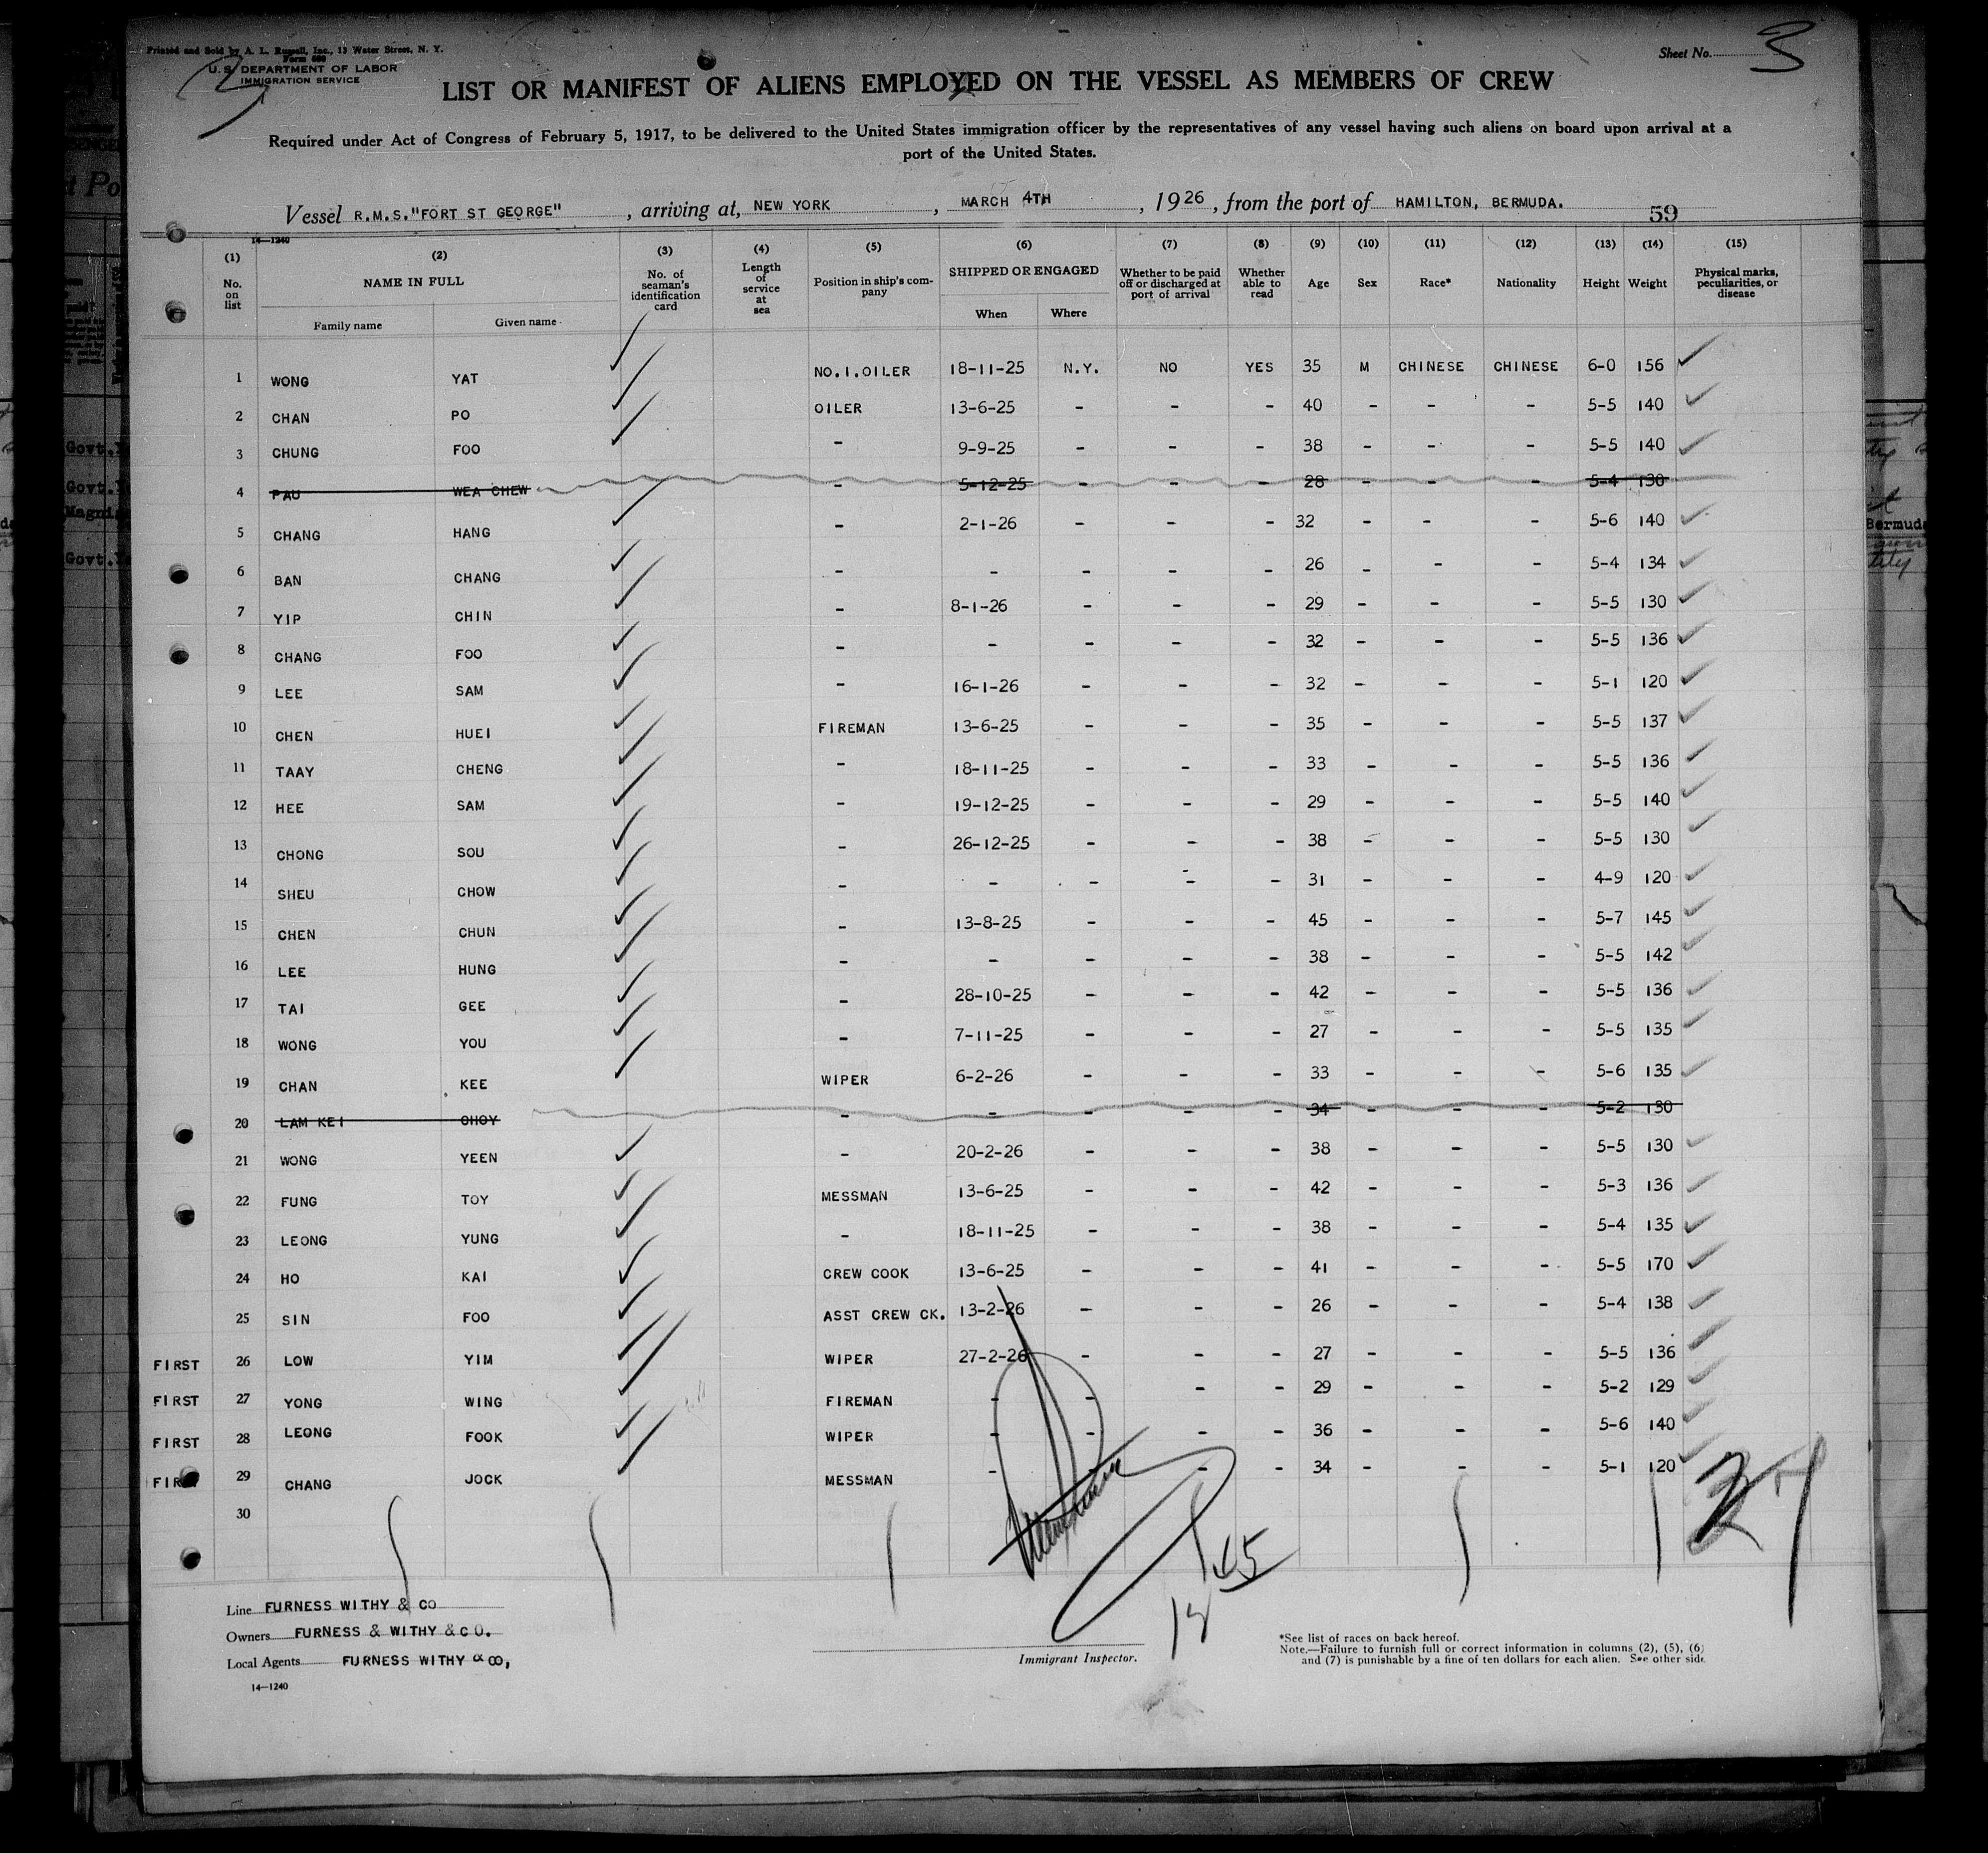 Printed and Sold by A. L. Russell, Inc., 13 Water Street, N. Y.
Form 680
U. S. DEPARTMENT OF LABOR
IMMIGRATION SERVICE
Sheet No. 3
3
LIST OR MANIFEST OF ALIENS EMPLOYED ON THE VESSEL AS MEMBERS OF CREW
Required under Act of Congress of February 5, 1917, to be delivered to the United States immigration officer by the representatives of any vessel having such aliens on board upon arrival at a
port of the United States.
Vessel R.M.S."FORT ST GEORGE" , arriving at, NEW YORK , MARCH 4TH , 1926 , from the port of HAMILTON, BERMUDA. 59
14—1240
(1) (2) (3) (4) (5) (6) (7) (8) (9) (10) (11) (12) (13) (14) (15)
No. on list NAME IN FULL Family name Given name No. of seaman's identification card Length of service at sea Position in ship's company SHIPPED OR ENGAGED When Where Whether to be paid off or discharged at port of arrival Whether able to read Age Sex Race* Nationality Height Weight Physical marks, peculiarities, or disease
1 WONG YAT NO.1.OILER 18-11-25 N.Y. NO YES 35 M CHINESE CHINESE 6-0 156
2 CHAN PO OILER 13-6-25 - - - 40 - - - 5-5 140
3 CHUNG FOO - 9-9-25 - - - 38 - - - 5-5 140
4 PAU WEA CHEW - 5-12-25 - - - 28 - - - 5-4 130
5 CHANG HANG - 2-1-26 - - - 32 - - - 5-6 140
6 BAN CHANG - - - - - 26 - - - 5-4 134
7 YIP CHIN - 8-1-26 - - - 29 - - - 5-5 130
8 CHANG FOO - - - - - 32 - - - 5-5 136
9 LEE SAM - 16-1-26 - - - 32 - - - 5-1 120
10 CHEN HUEI FIREMAN 13-6-25 - - - 35 - - - 5-5 137
11 TAAY CHENG - 18-11-25 - - - 33 - - - 5-5 136
12 HEE SAM - 19-12-25 - - - 29 - - - 5-5 140
13 CHONG SOU - 26-12-25 - - - 38 - - - 5-5 130
14 SHEU CHOW - - - - - 31 - - - 4-9 120
15 CHEN CHUN - 13-8-25 - - - 45 - - - 5-7 145
16 LEE HUNG - - - - - 38 - - - 5-5 142
17 TAI GEE - 28-10-25 - - - 42 - - - 5-5 136
18 WONG YOU - 7-11-25 - - - 27 - - - 5-5 135
19 CHAN KEE WIPER 6-2-26 - - - 33 - - - 5-6 135
20 LAM KEI CHOY - - - - - 34 - - - 5-2 130
21 WONG YEEN - 20-2-26 - - - 38 - - - 5-5 130
22 FUNG TOY MESSMAN 13-6-25 - - - 42 - - - 5-3 136
23 LEONG YUNG - 18-11-25 - - - 38 - - - 5-4 135
24 HO KAI CREW COOK 13-6-25 - - - 41 - - - 5-5 170
25 SIN FOO ASST CREW CK. 13-2-26 - - - 26 - - - 5-4 138
FIRST 26 LOW YIM WIPER 27-2-26 - - - 27 - - - 5-5 136
FIRST 27 YONG WING FIREMAN - - - - 29 - - - 5-2 129
FIRST 28 LEONG FOOK WIPER - - - - 36 - - - 5-6 140
FIRST 29 CHANG JOCK MESSMAN - - - - 34 - - - 5-1 120
30
27
45
Line FURNESS WITHY & CO
Owners FURNESS & WITHY & CO.
Local Agents FURNESS WITHY & CO,
14—1240
Immigrant Inspector.
*See list of races on back hereof.
Note.—Failure to furnish full or correct information in columns (2), (5), (6)
and (7) is punishable by a fine of ten dollars for each alien. See other side
Govt.
Govt.
Govt.